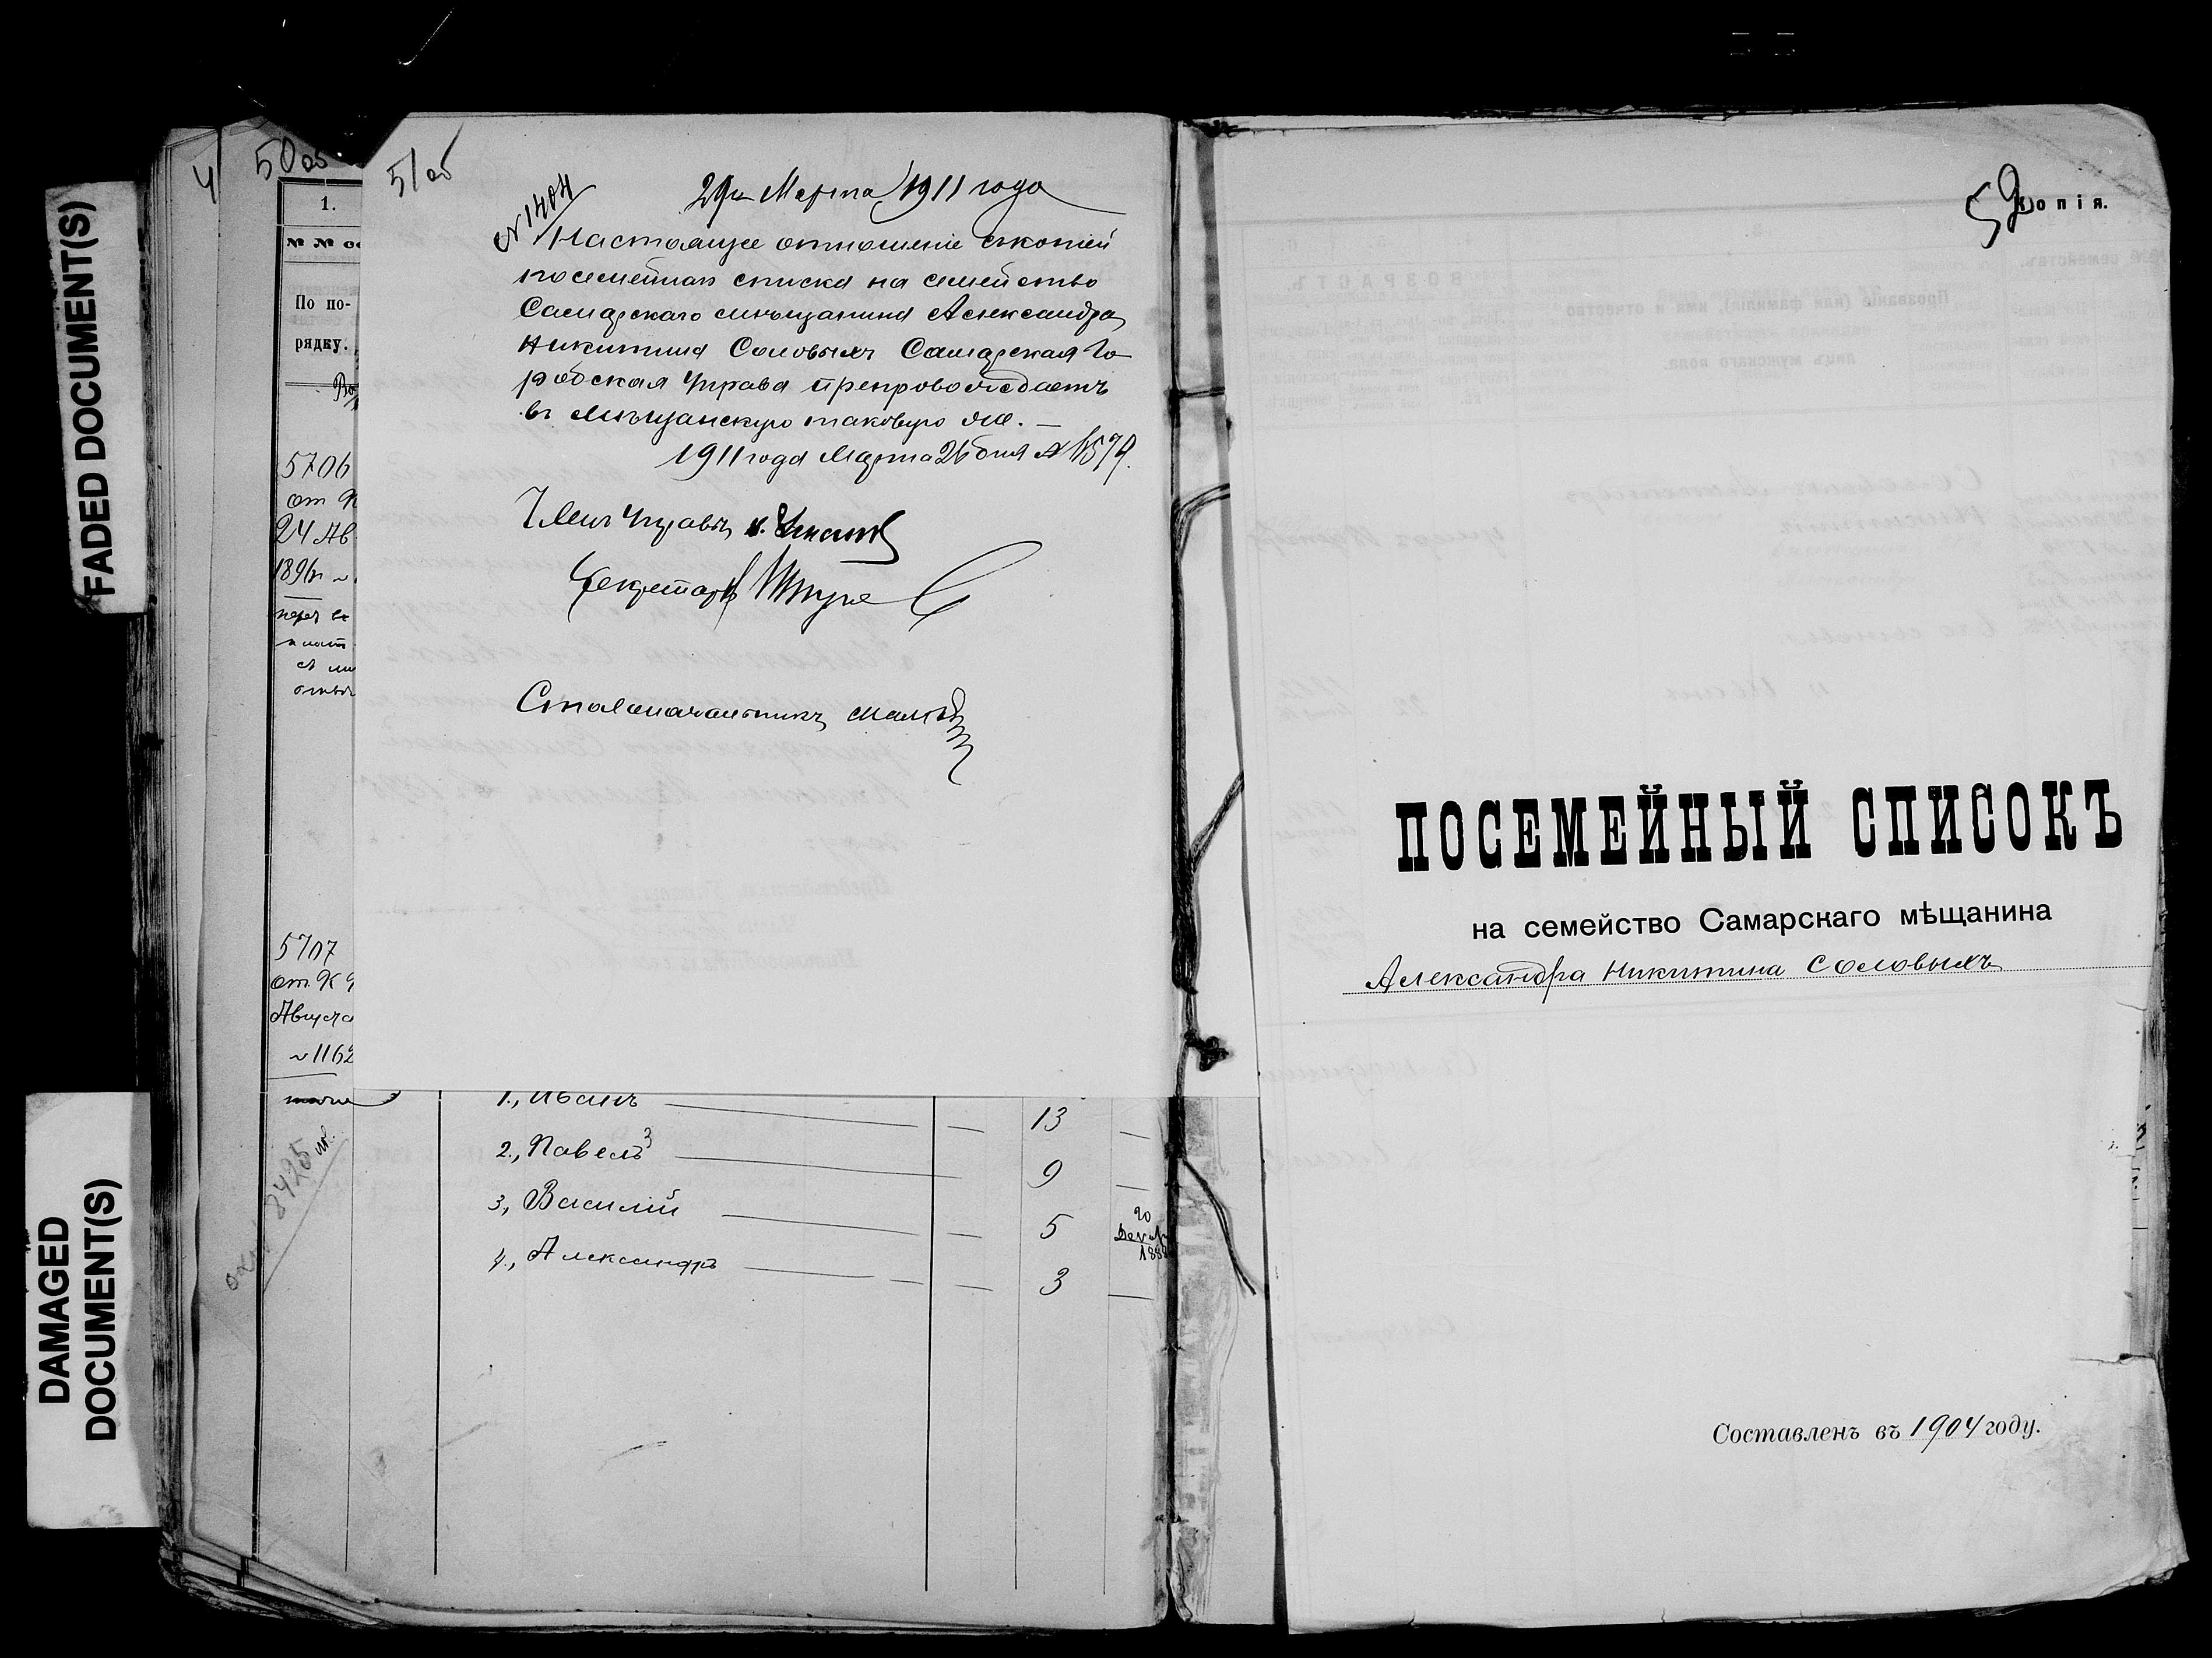 FADED DOCUMENT(S)
DAMAGED
DOCUMENT(S)
4
50 об
1.
№ № се
По по-
рядку.
5706
от
24 Ав
1896
5707
от
Августа
1162
51 об
№ 1404
29го Марта 1911 года
Настоящее отношеніе съ копіей
посемейнаго списка на семейство
Самарскаго мѣщанина Александра
Никитина Соловыхъ Самарская Го-
родская Управа препровождаетъ
въ мѣщанскую таковую же. —
1911 года Марта 26 дня №
Членъ Управы
Секретарь
Столоначальникъ
1., Иванъ 13
2., Павелъ 3 9
3., Василій 5 20
4., Александръ 3
52
Копія.
ПОСЕМЕЙНЫЙ СПИСОКЪ
на семейство Самарскаго мѣщанина
Александра Никитина Соловыхъ
Составленъ въ 1904 году.